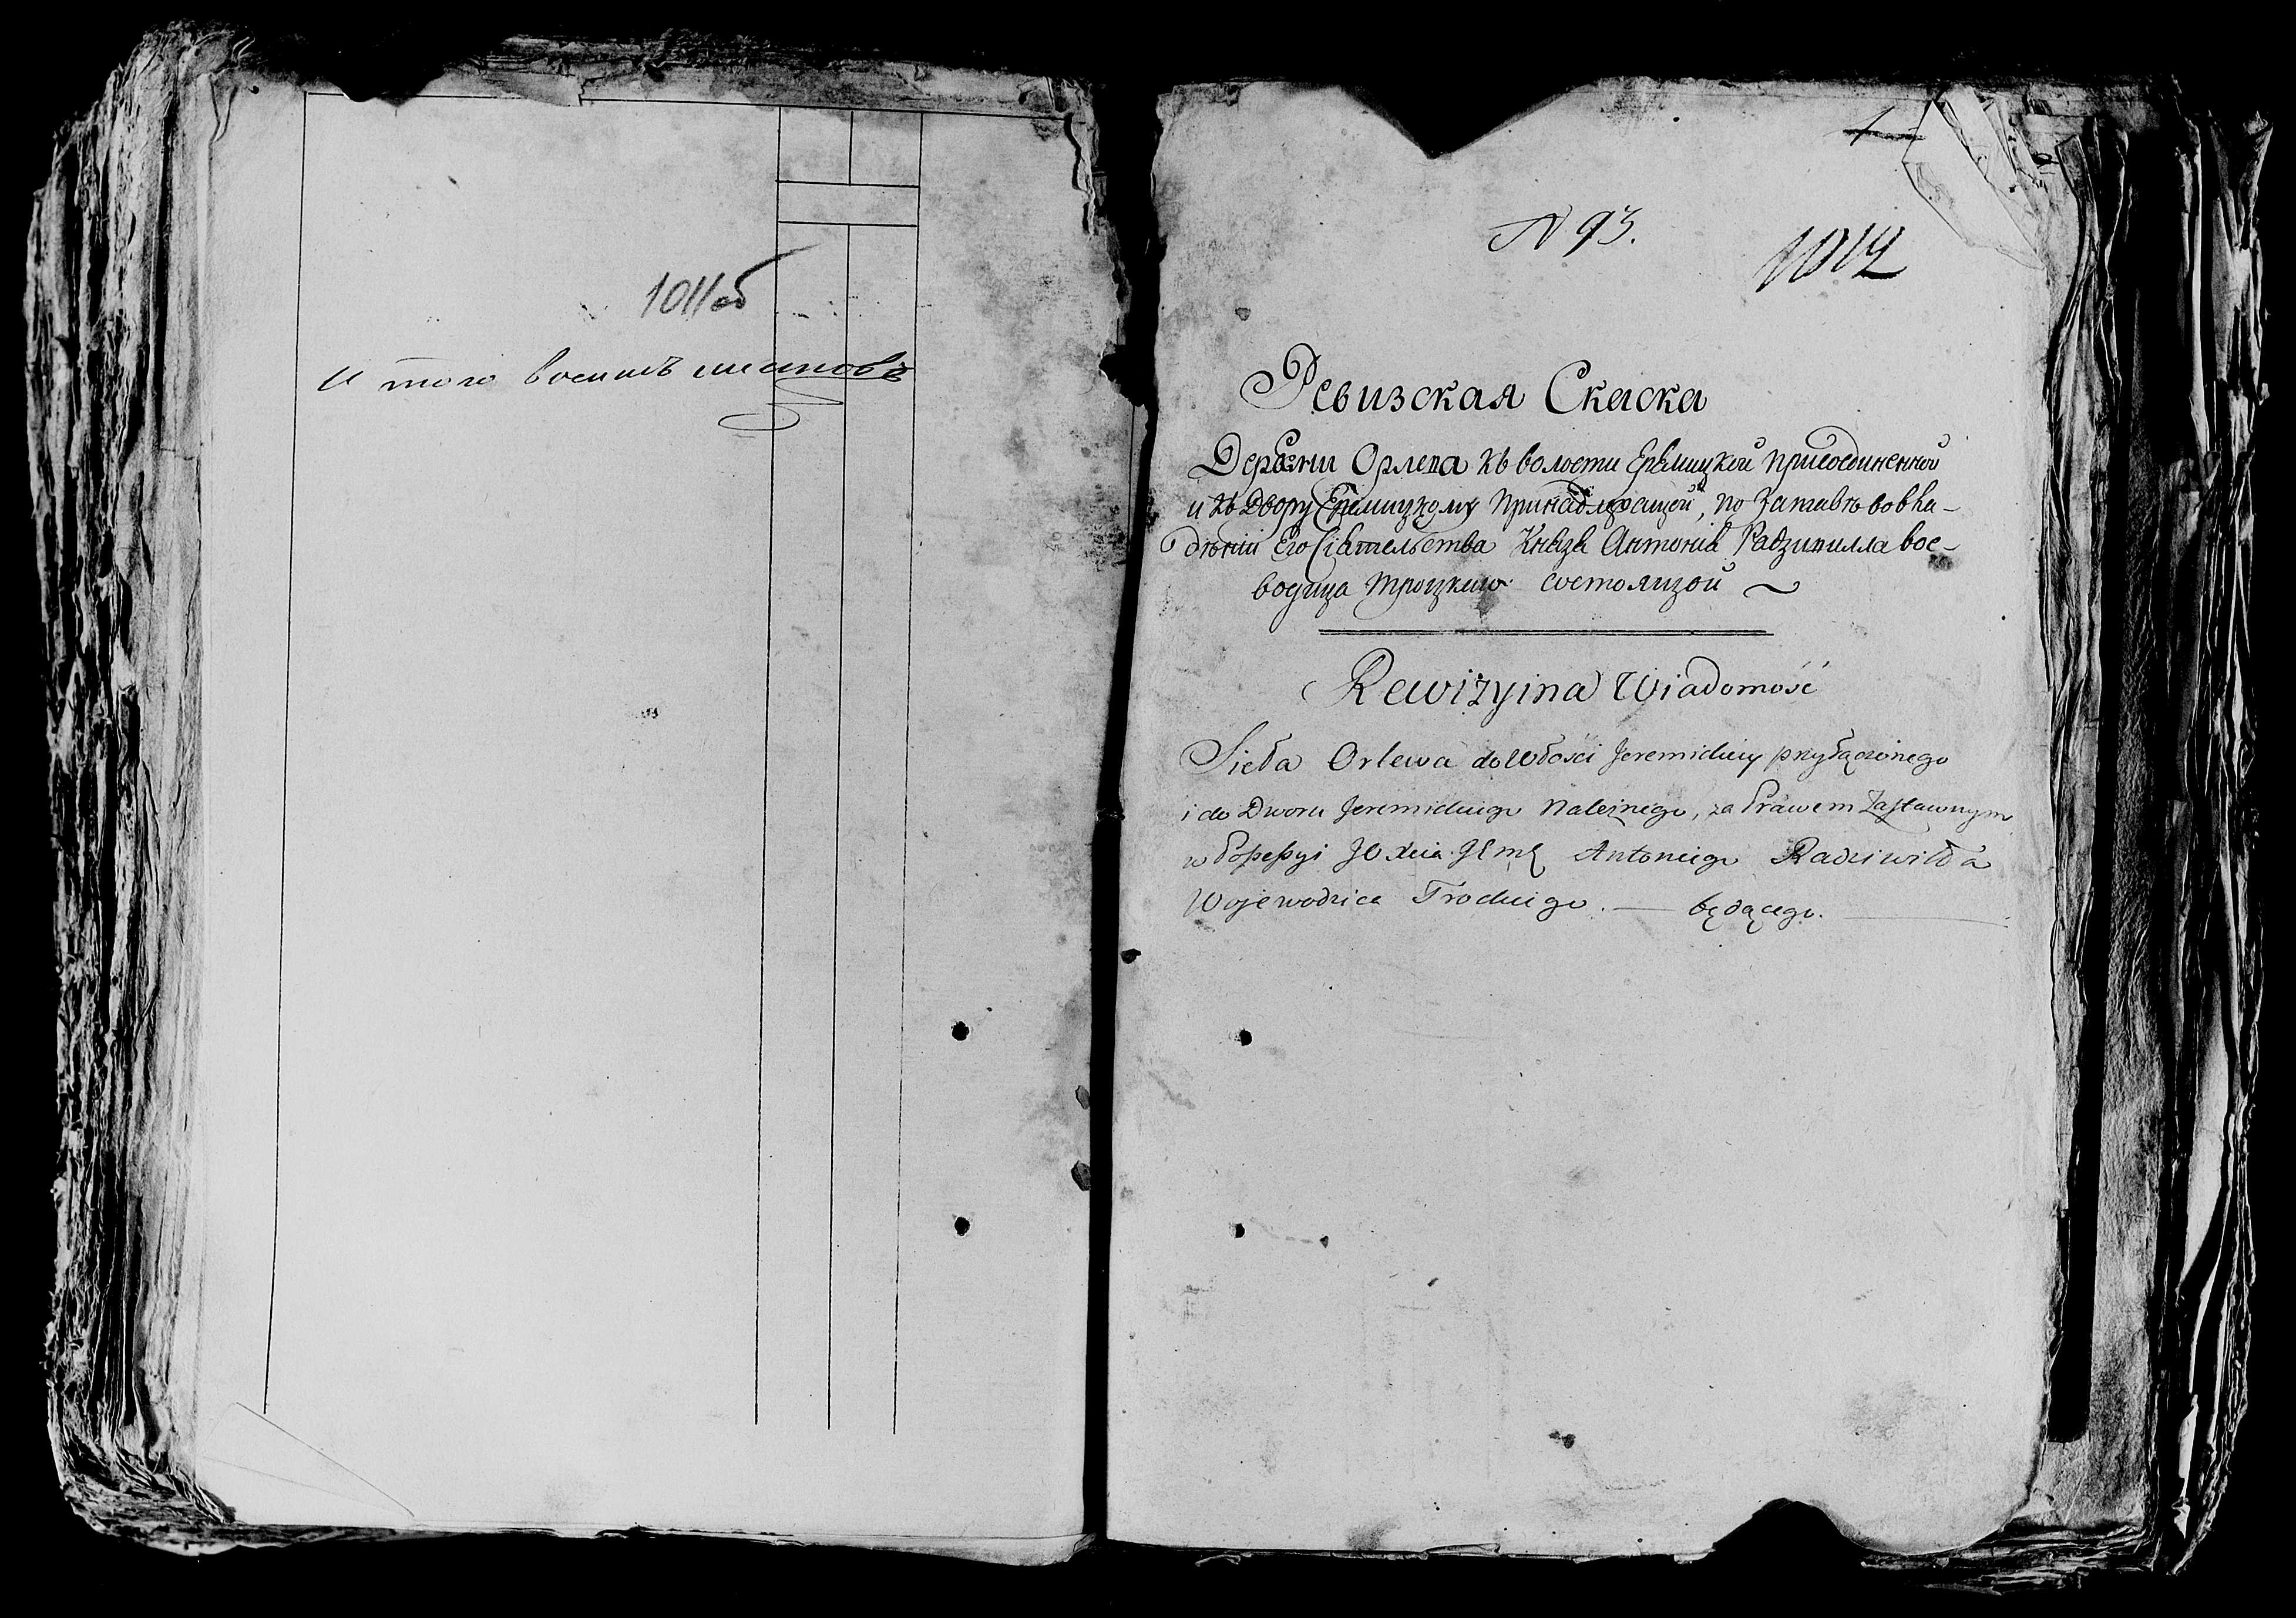 1011об
И того восимъ
N 93.
1012
Ревизская Скаска
Деревни Орлева къ волости Еремицкой присоединенной
и къ Двору Еремицкому принадлежащей, по заставъ во вла-
дѣніи Его Сіательства Князя Антонія Радзивилла вое-
водица Троцкаго состоящой
Rewizyina Wiadomość
Sieła Orlewa do Włości Jeremickiey przyłączonego
i do Dworu Jeremickiego Należnego, za Prawem Zastawnym
w Possessyi JO Xcia Antoniego Radziwiłła
Wojewodzica Trockiego. — będącego. —